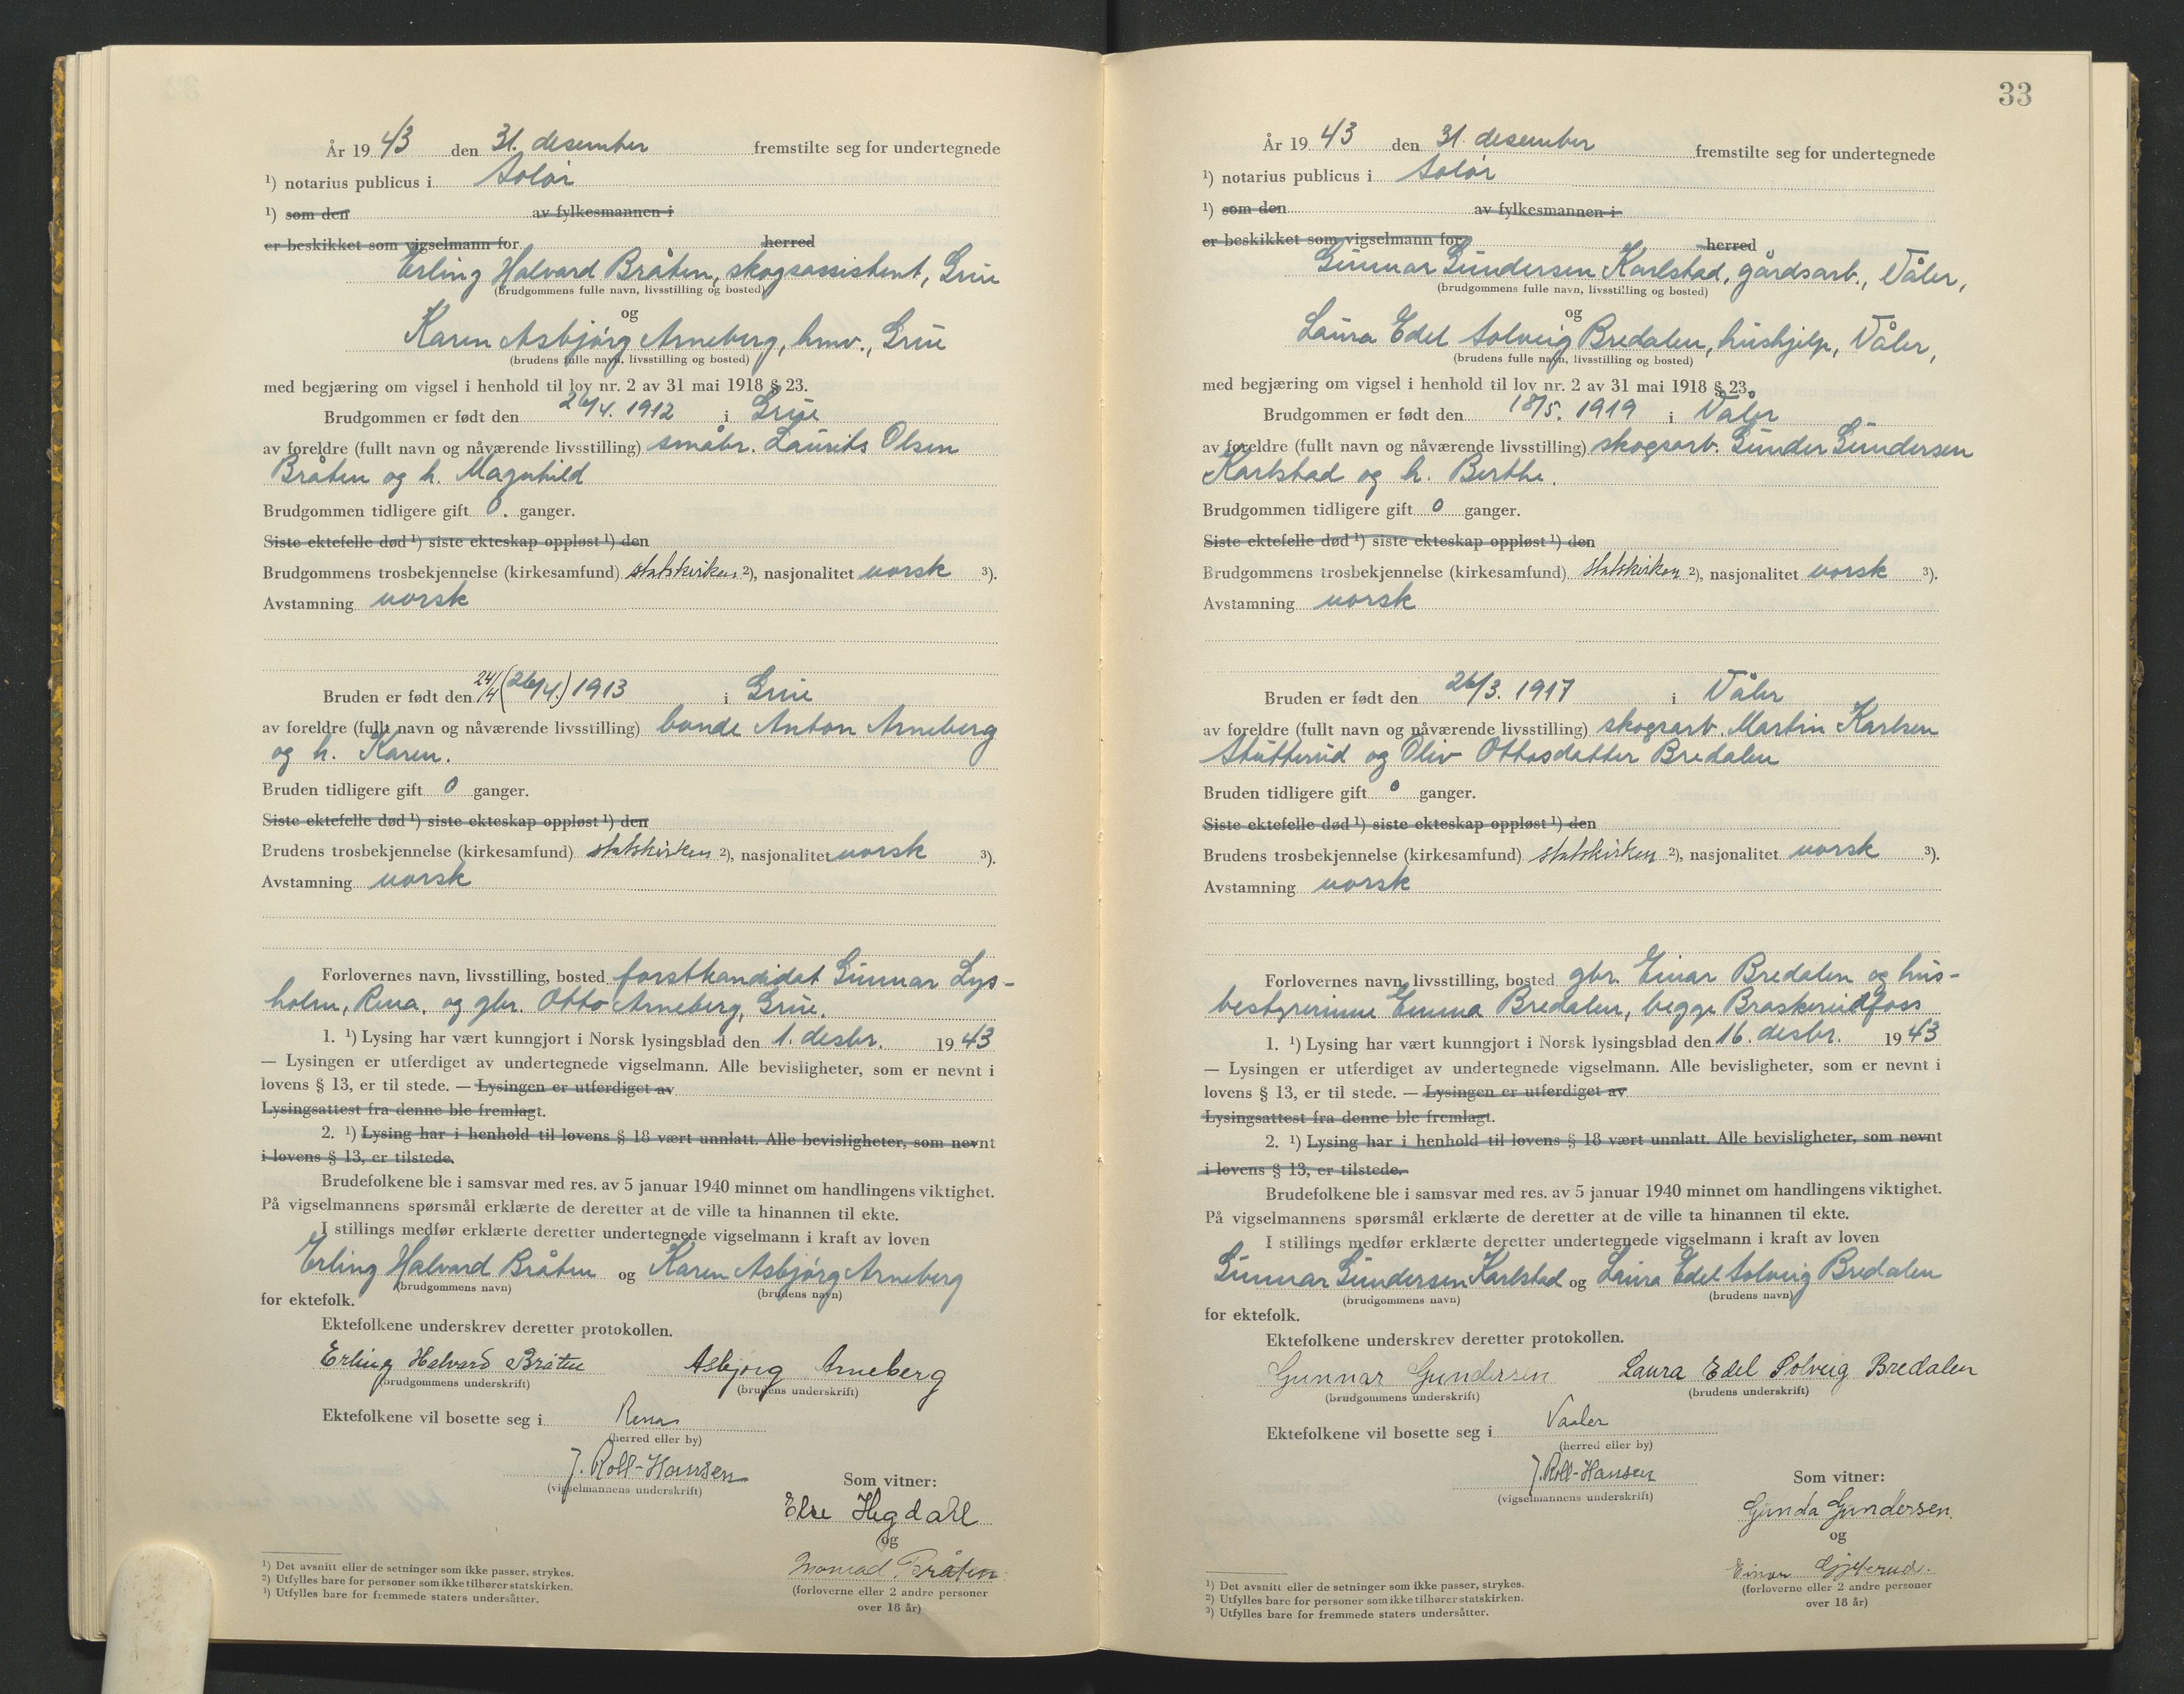 År 19 43 den 31. desember fremstilte seg for undertegnede
¹) notarius publicus i Solør
¹) som den av fylkesmannen i
er beskikket som vigselmann for herred
Erling Halvard Bråten, skogsassistent, Grue
(brudgommens fulle navn, livsstilling og bosted)
og
Karen Asbjørg Arneberg, hmv., Grue
(brudens fulle navn, livsstilling og bosted)
med begjæring om vigsel i henhold til lov nr. 2 av 31 mai 1918 § 23.
Brudgommen er født den 26/4. 1912 i Grue
av foreldre (fullt navn og nåværende livsstilling) småbr. Laurits Olsen
Bråten og h. Magnhild
Brudgommen tidligere gift 0. ganger.
Siste ektefelle død ¹) siste ekteskap oppløst ¹) den
Brudgommens trosbekjennelse (kirkesamfund) statskirken ²), nasjonalitet norsk ³).
Avstamning norsk
Bruden er født den 24/4 (26/4.) 1913 i Grue
av foreldre (fullt navn og nåværende livsstilling) bonde Anton Arneberg
og h. Karen.
Bruden tidligere gift 0 ganger.
Siste ektefelle død ¹) siste ekteskap oppløst ¹) den
Brudens trosbekjennelse (kirkesamfund) statskirken ²), nasjonalitet norsk ³).
Avstamning norsk
Forlovernes navn, livsstilling, bosted forstkandidat Gunnar Lys-
holm, Rena, og gbr. Otto Arneberg, Grue.
1. ¹) Lysing har vært kunngjort i Norsk lysingsblad den 1. desbr. 19 43
— Lysingen er utferdiget av undertegnede vigselmann. Alle bevisligheter, som er nevnt i
lovens § 13, er til stede. — Lysingen er utferdiget av
Lysingsattest fra denne ble fremlagt.
2. ¹) Lysing har i henhold til lovens § 18 vært unnlatt. Alle bevisligheter, som nevnt
i lovens § 13, er tilstede.
Brudefolkene ble i samsvar med res. av 5 januar 1940 minnet om handlingens viktighet.
På vigselmannens spørsmål erklærte de deretter at de ville ta hinannen til ekte.
I stillings medfør erklærte deretter undertegnede vigselmann i kraft av loven
Erling Halvard Bråten og Karen Asbjørg Arneberg
(brudgommens navn) (brudens navn)
for ektefolk.
Ektefolkene underskrev deretter protokollen.
Erling Halvard Bråten Asbjørg Arneberg
(brudgommens underskrift) (brudens underskrift)
Ektefolkene vil bosette seg i Rena
(herred eller by)
J. Roll-Hansen
(vigselmannens underskrift)
Som vitner:
Else Hegdahl
og
Bråten
(forloverne eller 2 andre personer
over 18 år)
¹) Det avsnitt eller de setninger som ikke passer, strykes.
²) Utfylles bare for personer som ikke tilhører statskirken.
³) Utfylles bare for fremmede staters undersåtter.
33
År 19 43 den 31. desember fremstilte seg for undertegnede
¹) notarius publicus i Solør
¹) som den av fylkesmannen i
er beskikket som vigselmann for herred
Gunnar Gundersen Karlstad, gårdsarb., Våler,
(brudgommens fulle navn, livsstilling og bosted)
og
Laura Edel Solveig Bredalen, hushjelp, Våler,
(brudens fulle navn, livsstilling og bosted)
med begjæring om vigsel i henhold til lov nr. 2 av 31 mai 1918 § 23.
Brudgommen er født den 18/5. 1919 i Våler
av foreldre (fullt navn og nåværende livsstilling) skogsarb. Gunder Gundersen
Karlstad og h. Berthe.
Brudgommen tidligere gift 0 ganger.
Siste ektefelle død ¹) siste ekteskap oppløst ¹) den
Brudgommens trosbekjennelse (kirkesamfund) statskirken ²), nasjonalitet norsk ³).
Avstamning norsk
Bruden er født den 26/3. 1917 i Våler
av foreldre (fullt navn og nåværende livsstilling) skogsarb. Martin Karlsen
Stutterud og Oliv Ottosdatter Bredalen
Bruden tidligere gift 0 ganger.
Siste ektefelle død ¹) siste ekteskap oppløst ¹) den
Brudens trosbekjennelse (kirkesamfund) statskirken ²), nasjonalitet norsk ³).
Avstamning norsk
Forlovernes navn, livsstilling, bosted gbr. Einar Bredalen og hus-
bestyrerinne Emma Bredalen, begge Braskereidfoss
1. ¹) Lysing har vært kunngjort i Norsk lysingsblad den 16. desbr. 19 43
— Lysingen er utferdiget av undertegnede vigselmann. Alle bevisligheter, som er nevnt i
lovens § 13, er til stede. — Lysingen er utferdiget av
Lysingsattest fra denne ble fremlagt.
2. ¹) Lysing har i henhold til lovens § 18 vært unnlatt. Alle bevisligheter, som nevnt
i lovens § 13, er tilstede.
Brudefolkene ble i samsvar med res. av 5 januar 1940 minnet om handlingens viktighet.
På vigselmannens spørsmål erklærte de deretter at de ville ta hinannen til ekte.
I stillings medfør erklærte deretter undertegnede vigselmann i kraft av loven
Gunnar Gundersen Karlstad og Laura Edel Solveig Bredalen
(brudgommens navn) (brudens navn)
for ektefolk.
Ektefolkene underskrev deretter protokollen.
Gunnar Gundersen Laura Edel Solveig Bredalen
(brudgommens underskrift) (brudens underskrift)
Ektefolkene vil bosette seg i Vaaler
(herred eller by)
J. Roll-Hansen
(vigselmannens underskrift)
Som vitner:
Gunda Gundersen.
og
Einar
(forloverne eller 2 andre personer
over 18 år)
¹) Det avsnitt eller de setninger som ikke passer, strykes.
²) Utfylles bare for personer som ikke tilhører statskirken.
³) Utfylles bare for fremmede staters undersåtter.